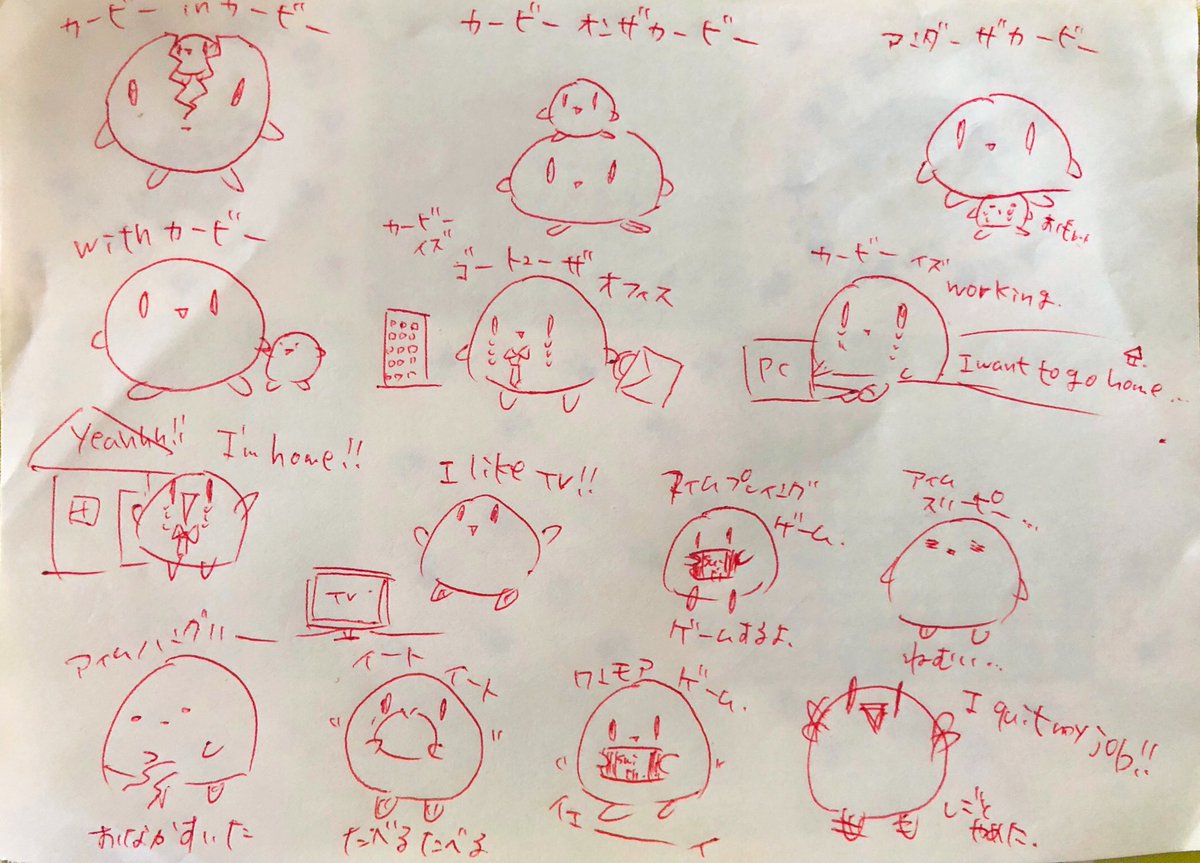 カービー in カービー
カービー オンザカービー
アンダー ザ カービー
おもい…
with カービー
カービー
イズ
ゴートゥーザ
オフィス
カービー イズ
working.
PC
I want to go home...
Yeahhh!!
I'm home!!
I like TV!!
TV
アイムプレイング
ゲーム.
ゲームするよ.
アイム
スリーピー...
ねむい...
アイムハングリー
おなかすいた
イート
イート
たべるたべる
ワンモア ゲーム.
イェーイ
I quit my job!!
しごと
やめた.